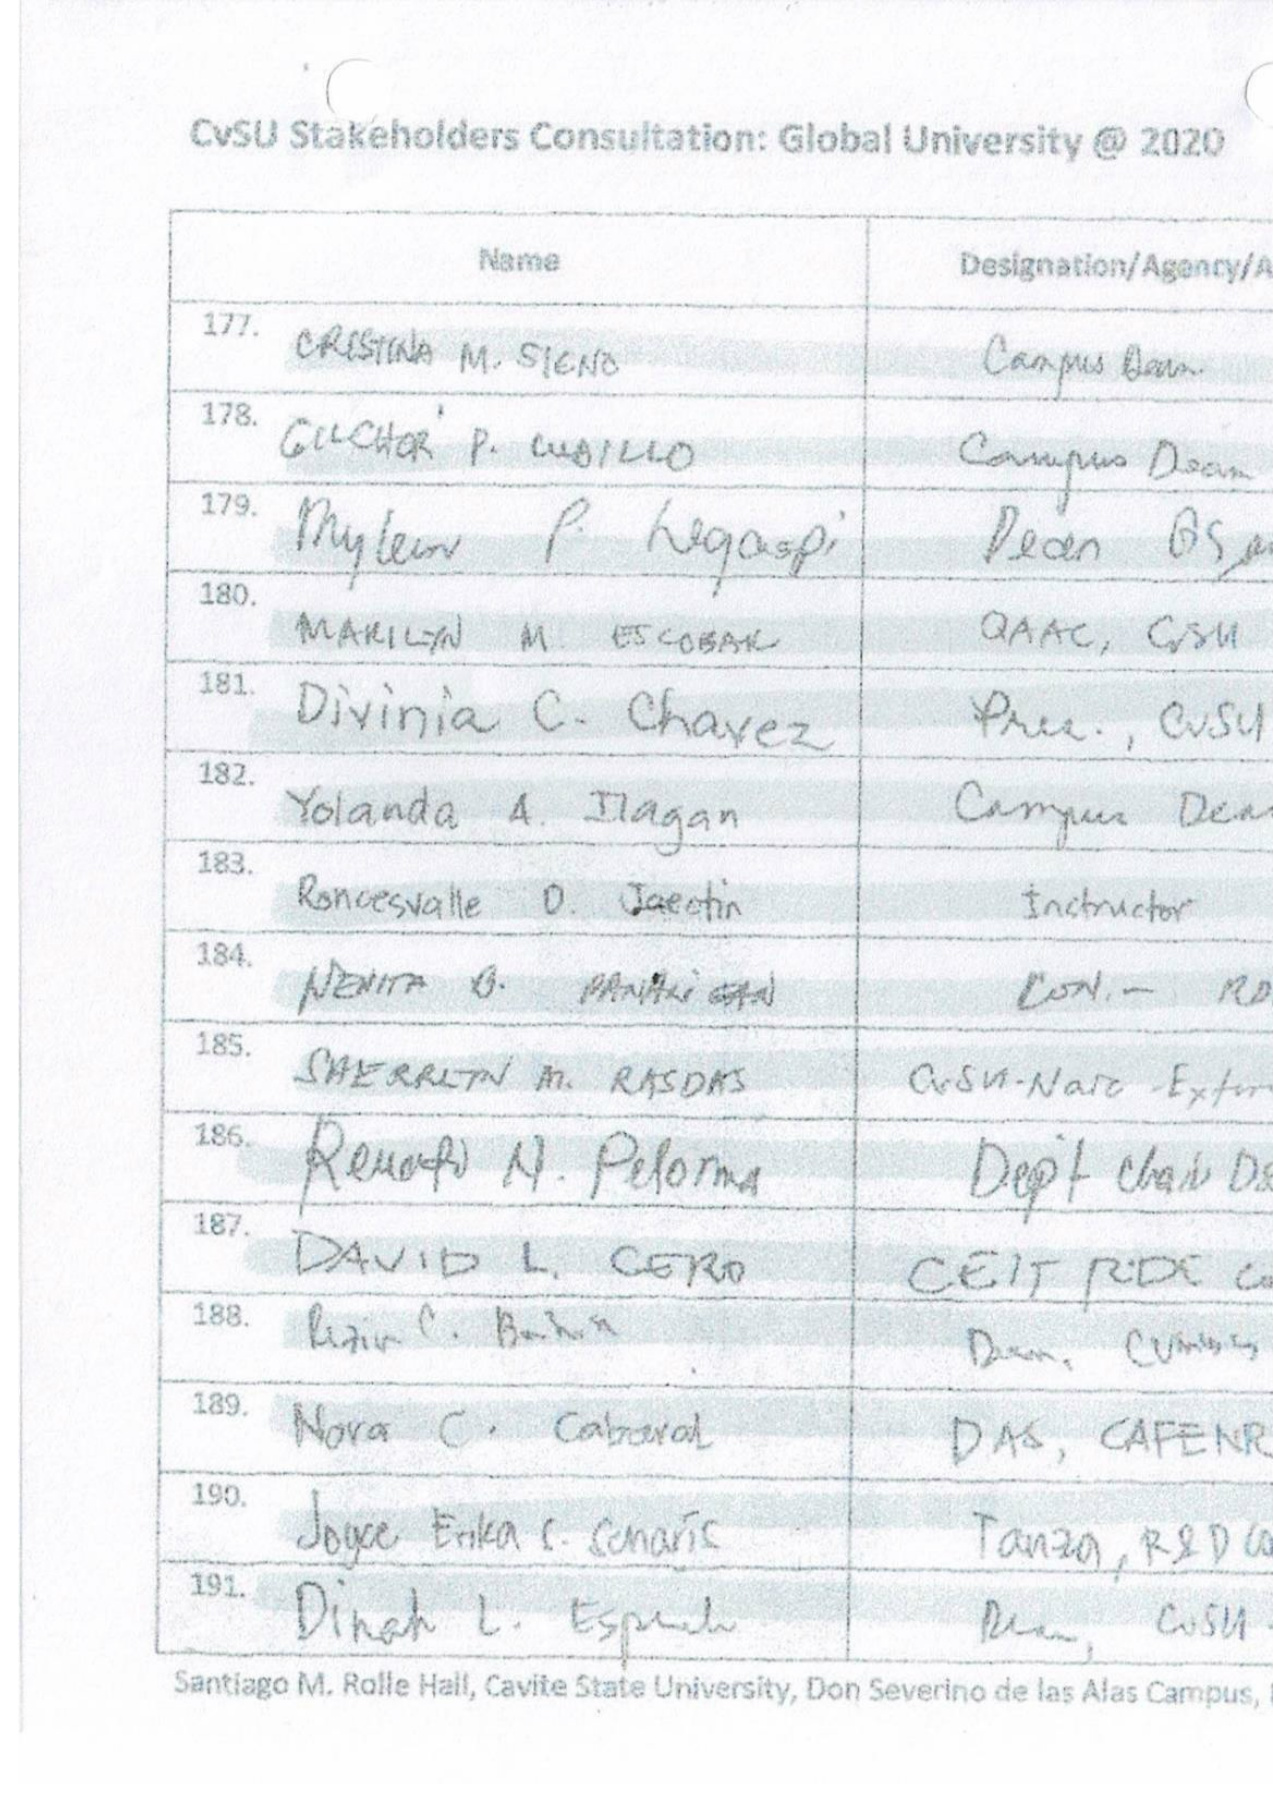 CvSU Stakeholders Consultation: Global University @ 2020
Name Designation/Agency/A
177. CRISTINA M. SIENO Campus Dean
178. GILCHOR P. CUBILLO Campus Dean
179. P. Legaspi Dean
180. MARILYN M. ESCOBAR QAAC, CvSU
181. Divinia C. Chavez Pres., CvSU
182. Yolanda A. Ilagan Campus Dean
183. Roncesvalle D. Instructor
184. NENITA B. PANALIGAN
185. SHERRLYN M. RASDAS CvSU-Naic -Exten
186. Renato N. Pelorina Dept Chair
187. DAVID L. CERO CEIT RDE Co
188.
189. Nova C. Cabaral DAS, CAFENR
190. Joyce Erika S. Senaris Tanza, R&D Co
191. Dinah L. CvSU -
Santiago M. Rolle Hall, Cavite State University, Don Severino de las Alas Campus, I